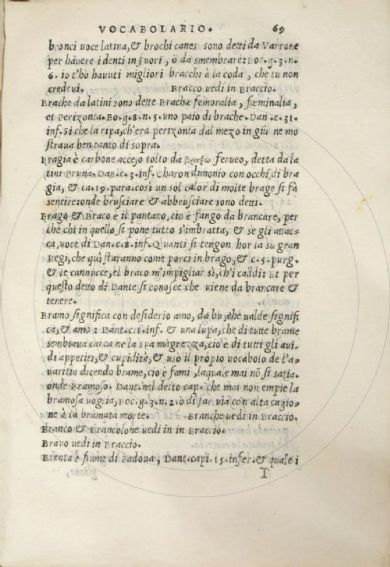 VOCABOLARIO. 69
bronci uoce latina, & brochi canes sono detti da Varrone
per hauere i denti in fuori, o da smembrare: Boc. g. 3. n.
6. io t'hò hauuti migliori bracchi à la coda, che tu non
credeui. Bracco uedi in Braccio.
Brache da latini sono dette Brachæ femoralia, fœminalia,
et Perizonta. Bo. g. 8. n. 5. uno paio di brache. Dan. c. 31.
inf. Si che la ripa, ch'era perizonta dal mezo in giu ne mo
straua ben tanto di sopra.
Bragia è carbone acceso tolto da ferueo, detta da la
tini Pruna. Dan. c. 3. inf. Charon dimonio con occhi di bra
gia, & ca. 19. para. così un sol calor di molte brage si fà
sentire: onde brusciare & abbrusciare sono detti.
Brago & Braco è il pantano, cio è fango da brancare, per
che chi in quello si pone tutto s'imbratta, & se gli attac
ca, uoce di Dan. c. 8. inf. Quanti si tengon hor la su gran
Regi, che quà staranno come porci in brago, & c. 5. purg.
& le cannucce, el braco m'impigliar sì, ch'i caddi: Et per
questo detto di Dante si conosce che uiene da brancare &
tenere.
Bramo significa con desiderio amo, da bu, che ualde signifi
ca, & amo: Dant. c. 1. inf. & una lupa, che di tutte brame
sembiaua carca ne la sua magrezza, cio è di tutti gli aui-
di appetiti, & cupidità, & usò il propio uocabolo de l'a-
uaritia dicendo brame, cio è fami, laquale mai nõ si satia.
onde Bramoso. Dant. nel detto cap. che mai non empie la
bramosa uoglia, Boc. g. 3. n. 2. o di far uia con alta cagio-
ne à la bramata morte. Branche uedi in Braccio.
Branco & Brancolone uedi in in Braccio.
Brauo uedi in Braccio.
Brenta è fiume di Padoua, Dant. capi. 15. infer. & quale i
I